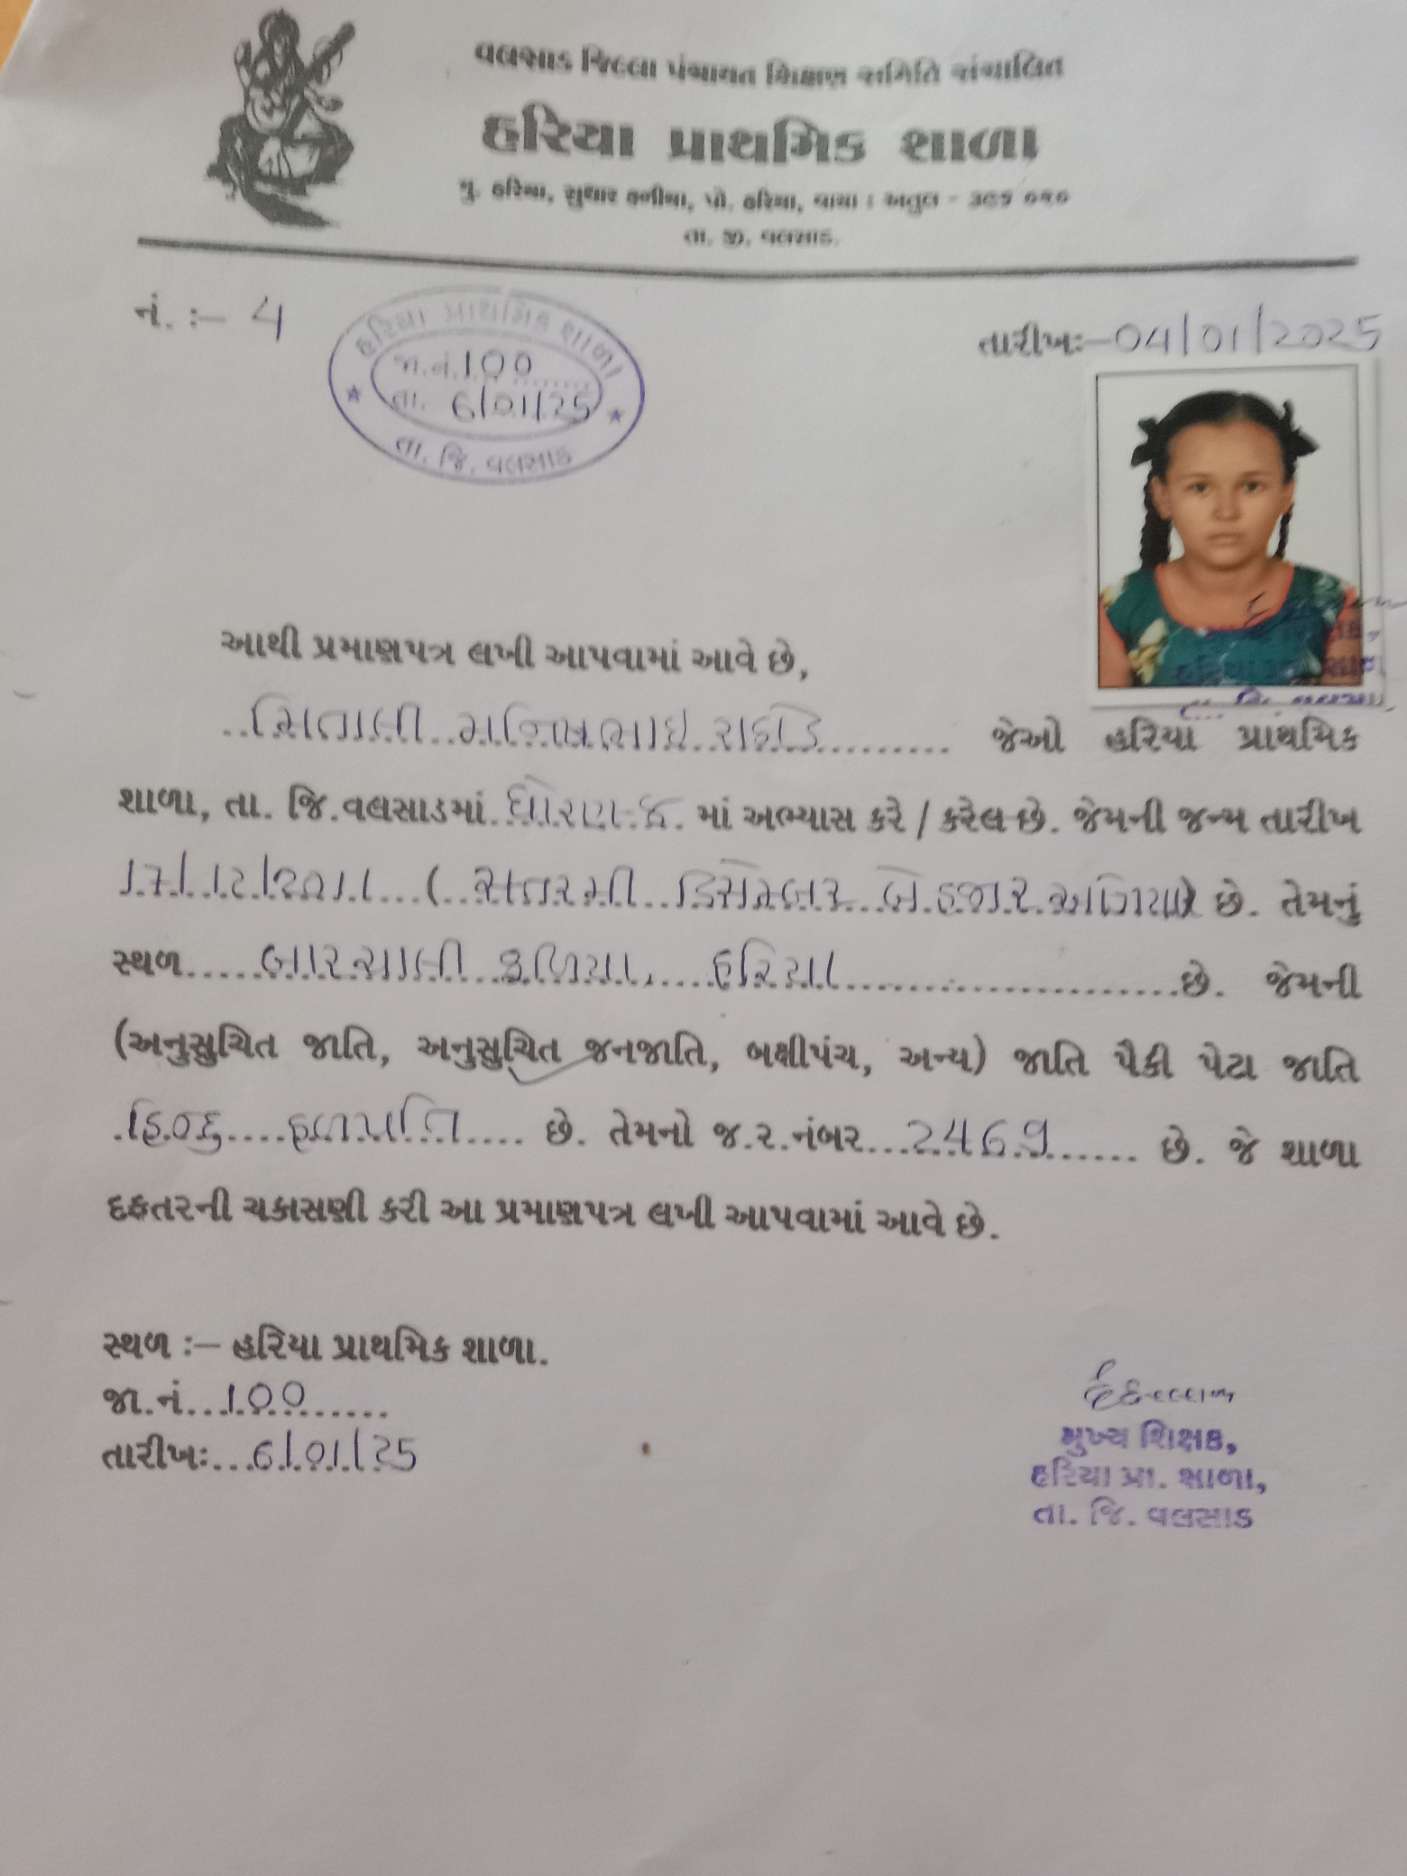 વલસાડ જિલ્લા પંચાયત શિક્ષણ સમિતિ સંચાલિત
હરિયા પ્રાથમિક શાળા
મુ. હરિયા, સુથાર ફળીયા, પો. હરિયા, વાયા : અતુલ - ૩૯૬ ૦૨૦
તા. જી. વલસાડ.
નં. :- 4
તારીખઃ-04/01/2025
હરિયા પ્રાથમિક શાળા
જા.નં.100
તા. 6/01/25
તા. જિ. વલસાડ
આથી પ્રમાણપત્ર લખી આપવામાં આવે છે,
મિતાલી મનિષભાઇ રાઠોડ જેઓ હરિયા પ્રાથમિક
શાળા, તા. જિ.વલસાડમાં ધોરણ-૮ માં અભ્યાસ કરે / કરેલ છે. જેમની જન્મ તારીખ
17/12/2011 (સતરમી ડિસેમ્બર બે હજાર અગિયાર) છે. તેમનું
સ્થળ બારચાલી ફળિયા, હરિયા છે. જેમની
(અનુસુચિત જાતિ, અનુસુચિત જનજાતિ, બક્ષીપંચ, અન્ય) જાતિ પૈકી પેટા જાતિ
હિન્દુ હળપતિ છે. તેમનો જ.ર.નંબર 2469 છે. જે શાળા
દફતરની ચકાસણી કરી આ પ્રમાણપત્ર લખી આપવામાં આવે છે.
સ્થળ :- હરિયા પ્રાથમિક શાળા.
જા.નં...100
તારીખઃ...6/01/25
મુખ્ય શિક્ષક,
હરિયા પ્રા. શાળા,
તા. જિ. વલસાડ